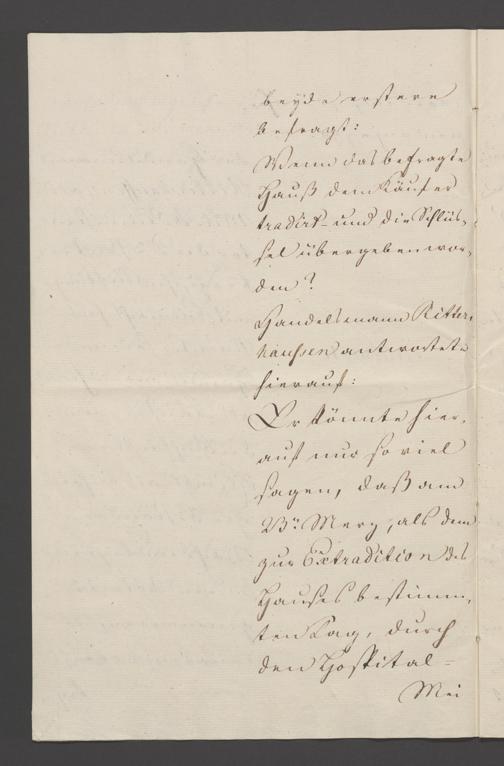 beyde erstere
befragt:
Wenn das befragte
Hauß dem Käufer
tradirt- und die Schlüs-
sel übergeben wor-
den?
Handelsmann Ritters
hausen antwortete
hierauf:
Er könnte hier-
auf nur so viel
sagen, daß am
23n Merz, als dem
zur Extradition des
Hauses bestimm-
ten Tag, durch
den Hospital-
Mei